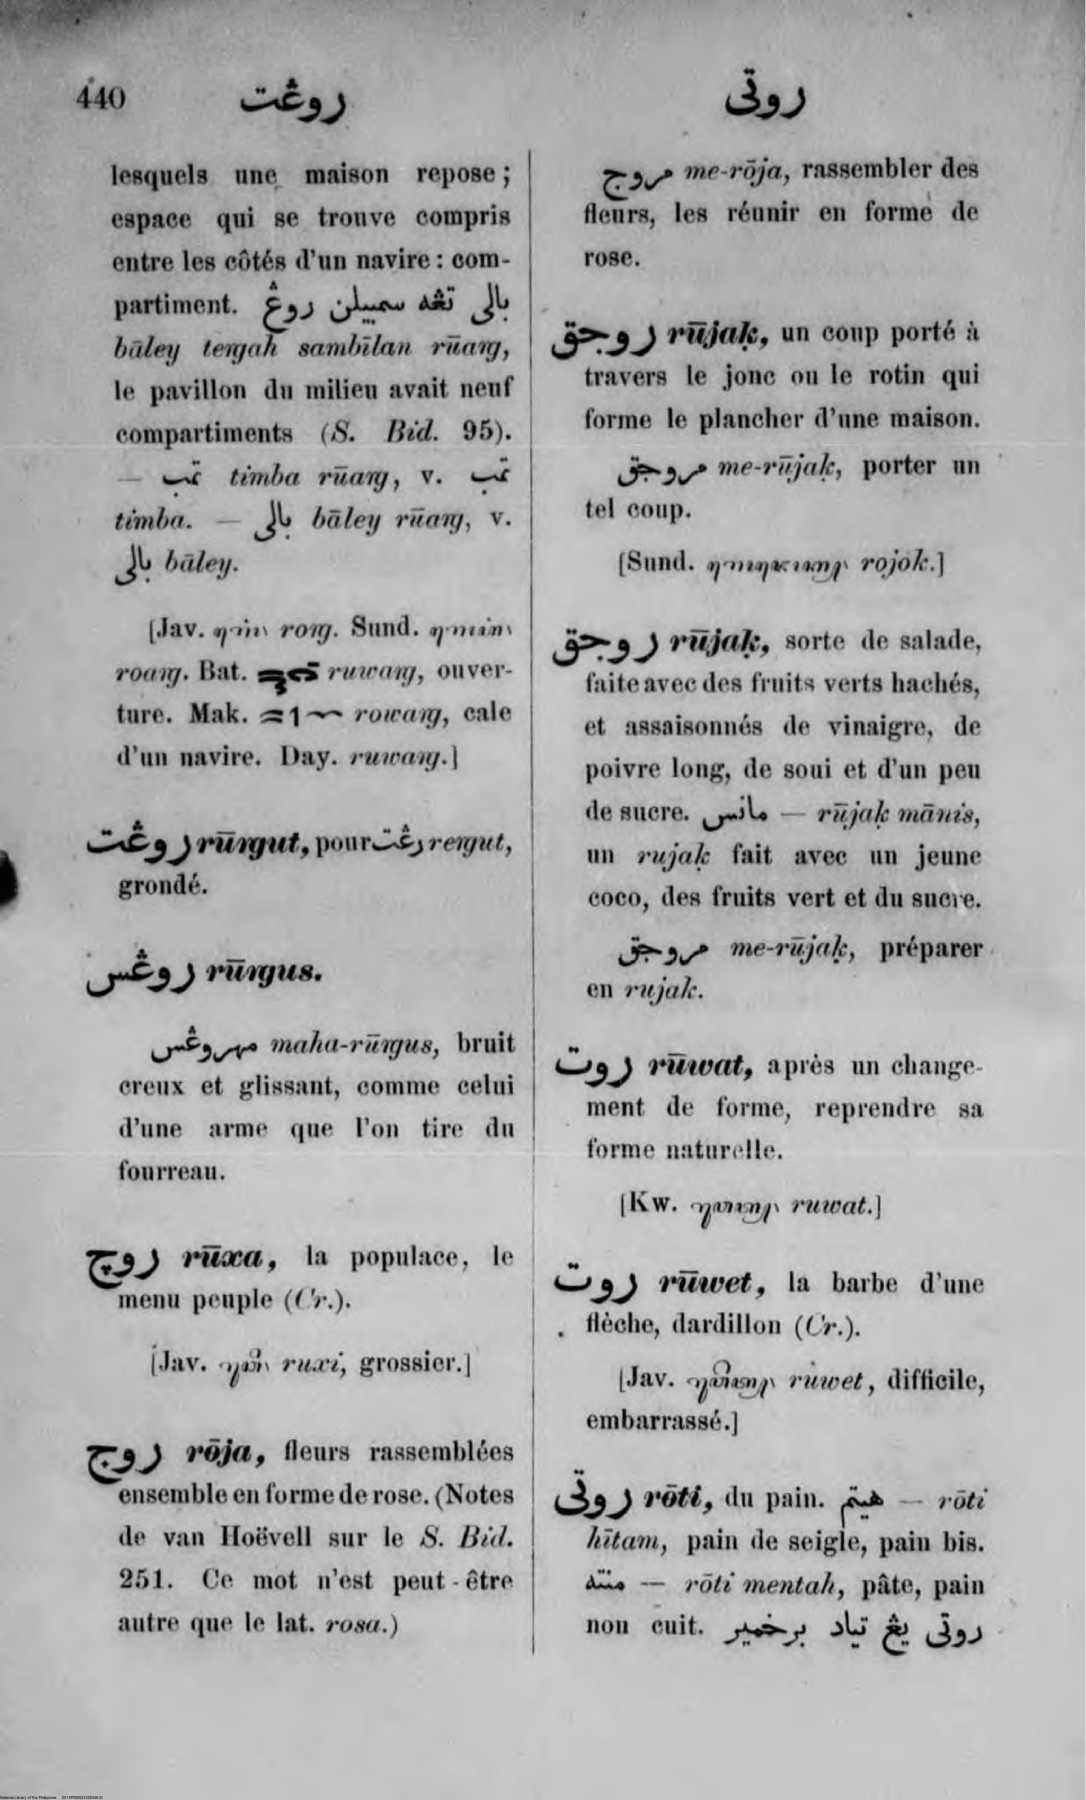 440 روڠت روتي
lesquels une maison repose;
espace qui se trouve compris
entre les côtés d'un navire: com-
partiment. بالي تڠه سمبيلن روڠ
bāley teŋah sambīlan rūaŋ,
le pavillon du milieu avait neuf
compartiments (S. Bid. 95).
— تمب timba rūaŋ, v. تمب
timba. — بالي bāley rūaŋ, v.
بالي bāley.
[Jav. roŋ. Sund.
roaŋ. Bat. ruwaŋ, ouver-
ture. Mak. rowaŋ, cale
d'un navire. Day. ruwaŋ.]
روڠت rūŋgut, pour رڠت reŋgut,
grondé.
روڠس rūŋgus.
مهروڠس maha-rūŋgus, bruit
creux et glissant, comme celui
d'une arme que l'on tire du
fourreau.
روچ rūxa, la populace, le
menu peuple (Cr.).
[Jav. ruxi, grossier.]
روج rōja, fleurs rassemblées
ensemble en forme de rose. (Notes
de van Hoëvell sur le S. Bid.
251. Ce mot n'est peut-être
autre que le lat. rosa.)
مروج me-rōja, rassembler des
fleurs, les réunir en forme de
rose.
روجق rūjaḳ, un coup porté à
travers le jonc ou le rotin qui
forme le plancher d'une maison.
مروجق me-rūjaḳ, porter un
tel coup.
[Sund. rojok.]
روجق rūjaḳ, sorte de salade,
faite avec des fruits verts hachés,
et assaisonnés de vinaigre, de
poivre long, de soui et d'un peu
de sucre. مانس — rūjaḳ mānis,
un rujaḳ fait avec un jeune
coco, des fruits vert et du sucre.
مروجق me-rūjaḳ, préparer
en rujak.
روت rūwat, après un change-
ment de forme, reprendre sa
forme naturelle.
[Kw. ruwat.]
روت rūwet, la barbe d'une
flèche, dardillon (Cr.).
[Jav. ruwet, difficile,
embarrassé.]
روتي rōti, du pain. هيتم — rōti
hītam, pain de seigle, pain bis.
منته — rōti mentah, pâte, pain
non cuit. روتي يڠ تياد برخمير